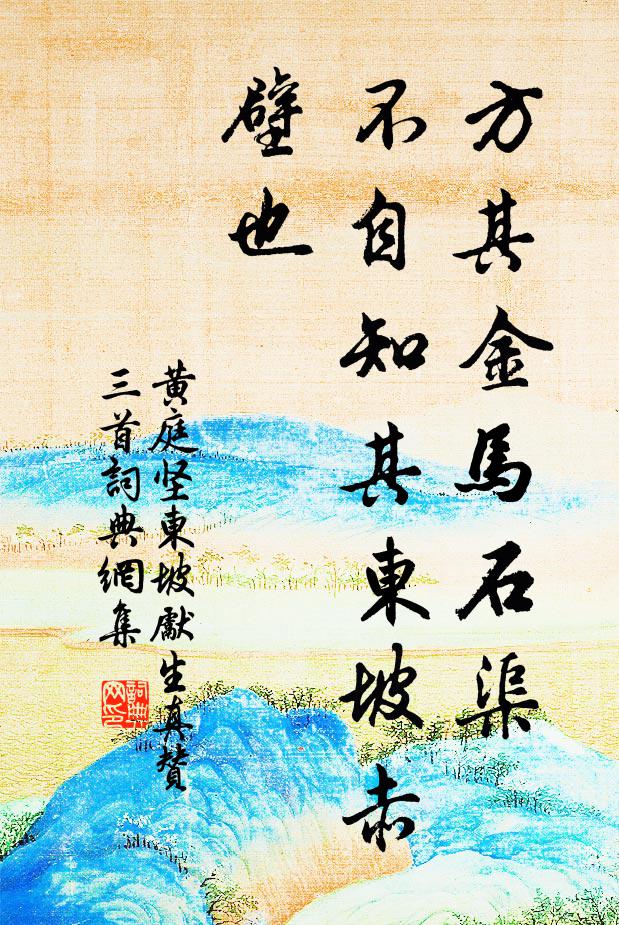 方其金馬石渠
不自知其東坡赤
壁也
黄庭坚東坡獻生真賛
三首詞典網集
詞典